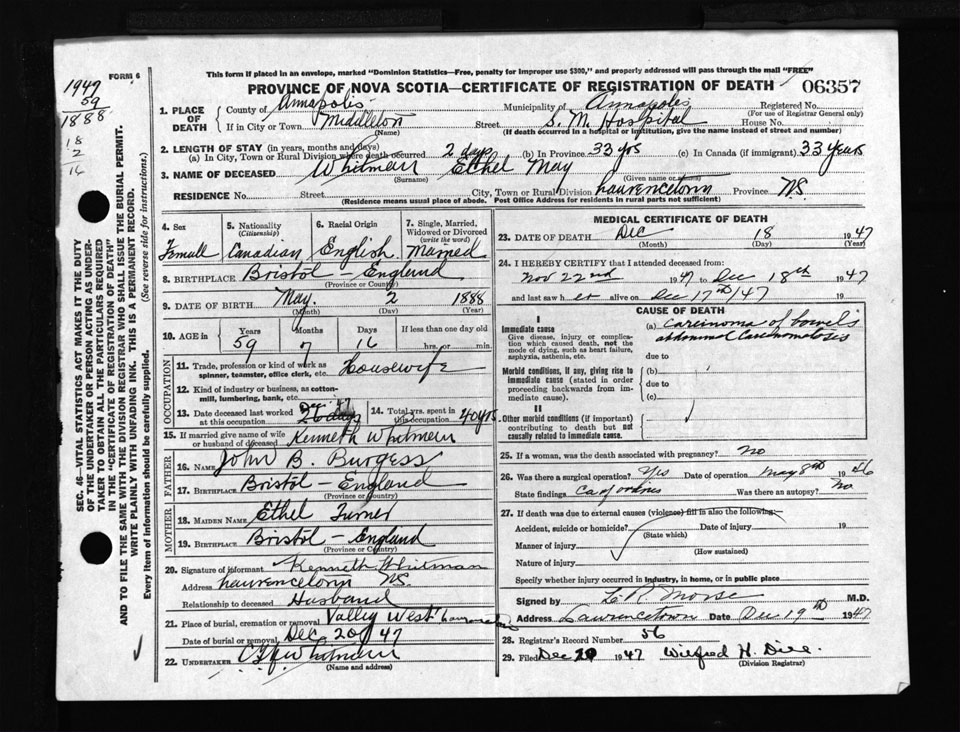 FORM 6
1947
59
1888
18
2
16
SEC. 46—VITAL STATISTICS ACT MAKES IT THE DUTY
OF THE UNDERTAKER OR PERSON ACTING AS UNDER-
TAKER TO OBTAIN ALL THE PARTICULARS REQUIRED
IN THE "CERTIFICATE OF REGISTRATION OF DEATH"
AND TO FILE THE SAME WITH THE DIVISION REGISTRAR WHO SHALL ISSUE THE BURIAL PERMIT.
WRITE PLAINLY WITH UNFADING INK. THIS IS A PERMANENT RECORD.
Every item of information should be carefully supplied. (See reverse side for instructions.)
This form if placed in an envelope, marked "Dominion Statistics—Free, penalty for improper use $300," and properly addressed will pass through the mail "FREE"
PROVINCE OF NOVA SCOTIA—CERTIFICATE OF REGISTRATION OF DEATH 06357
1. PLACE OF DEATH County of Annapolis Municipality of Annapolis Registered No.
(For use of Registrar General only)
If in City or Town Middleton Street S. M. Hospital House No.
(Name) (If death occurred in a hospital or institution, give the name instead of street and number)
2. LENGTH OF STAY (in years, months and days)
(a) In City, Town or Rural Division where death occurred 2 days (b) In Province 33 yrs (c) In Canada (if immigrant) 33 years
3. NAME OF DECEASED Whitman Ethel May
(Surname) (Given name or names)
RESIDENCE No. Street City, Town or Rural Division Lawrencetown Province N.S.
(Residence means usual place of abode. Post Office Address for residents in rural parts not sufficient)
4. Sex Female
5. Nationality (Citizenship) Canadian
6. Racial Origin English
7. Single, Married, Widowed or Divorced (write the word) Married
8. BIRTHPLACE Bristol - England
(Province or Country)
9. DATE OF BIRTH May 2 1888
(Month) (Day) (Year)
10. AGE in Years Months Days If less than one day old
59 7 16 hrs. or min.
OCCUPATION
11. Trade, profession or kind of work as spinner, teamster, office clerk, etc. Housewife
12. Kind of industry or business, as cotton-mill, lumbering, bank, etc.
13. Date deceased last worked at this occupation Dec. 47
14. Total yrs. spent in this occupation 40 yrs.
15. If married give name of wife or husband of deceased Kenneth Whitman
FATHER
16. NAME John B. Burgess
17. BIRTHPLACE Bristol - England
(Province or Country)
MOTHER
18. MAIDEN NAME Ethel Turner
19. BIRTHPLACE Bristol - England
(Province or Country)
20. Signature of informant Kenneth Whitman
Address Lawrencetown N.S.
Relationship to deceased Husband
21. Place of burial, cremation or removal Valley West Lawrencetown
Date of burial or removal Dec 20/47
22. UNDERTAKER Whitman
(Name and address)
MEDICAL CERTIFICATE OF DEATH
23. DATE OF DEATH Dec 18 1947
(Month) (Day) (Year)
24. I HEREBY CERTIFY that I attended deceased from:
Nov 22nd 1947 to Dec 18th 1947
and last saw her alive on Dec 17th/47 19
CAUSE OF DEATH
I
Immediate cause
Give disease, injury or complication which caused death, not the mode of dying, such as heart failure, asphyxia, asthenia, etc.
(a) Carcinoma of bowels
abdominal Carcinomatosis
due to
Morbid conditions, if any, giving rise to immediate cause (stated in order proceeding backwards from immediate cause).
(b)
due to
(c)
II
Other morbid conditions (if important) contributing to death but not causally related to immediate cause.
25. If a woman, was the death associated with pregnancy? No
26. Was there a surgical operation? Yes Date of operation May 8th 1946
State findings Ca of ovaries Was there an autopsy? No
27. If death was due to external causes (violence) fill in also the following:
Accident, suicide or homicide? Date of injury 19
(State which)
Manner of injury
(How sustained)
Nature of injury
Specify whether injury occurred in industry, in home, or in public place
Signed by L. R. Morse M.D.
Address Lawrencetown Date Dec 19th 1947
28. Registrar's Record Number 56
29. Filed Dec 1947 Wilfred H.
(Division Registrar)